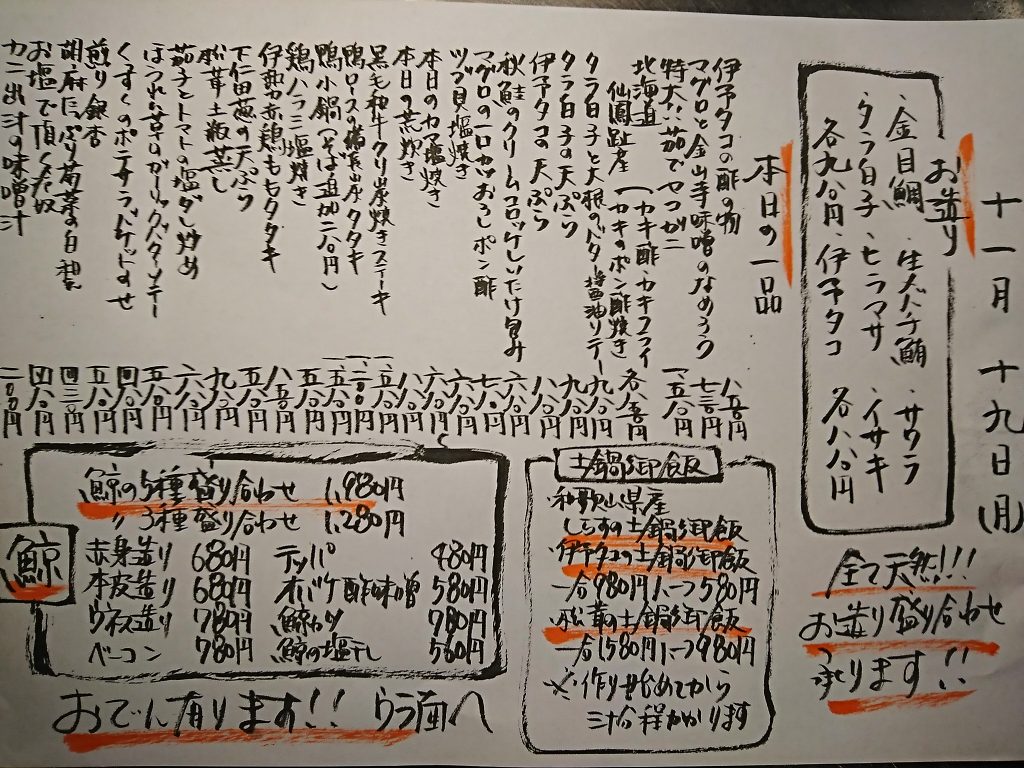 十一月 十九日(月)
お造り
・金目鯛 ・生本チチ鮪 ・サワラ
・タラ白子 ・ヒラマサ ・イサキ
各九八〇円 ・伊予タコ 各八八〇円
全て天然!!!
お造り盛り合わせ
承ります!!
本日の一品
伊予タコの酢の物 八八〇円
マグロと金山寺味噌のなめろう 七三〇円
特大!!茹でセコガニ 一、五八〇円
北海道仙鳳趾産 (カキ酢・カキフライ カキのポン酢焼き 各八五〇円
タラ白子と大根のバタ醤油ソテー 九八〇円
タラ白子の天ぷら 九八〇円
伊予タコの天ぷら 八八〇円
秋鮭のクリームコロッケしいたけ包み 六八〇円
マグロの一口カツおろしポン酢 七八〇円
ツブ貝塩焼き 六八〇円
本日のカマ塩焼き
本日の荒炊き
黒毛和牛クリ炭焼きステーキ
鴨ロースの備長炭タタキ
鴨小鍋(そば追加二八〇円)
鶏ハラミ塩焼き
伊勢赤鶏ももタタキ
下仁田葱の天ぷら
松茸土瓶蒸し
茄子とトマトの塩ダレ炒め
ほつれい草のガーリックバターソテー
くずくのポテサラバケットのせ
煎り銀杏
胡麻たっぷり菊菜の白和え
お塩で頂く冷奴
カニ出汁の味噌汁
土鍋御飯
・和歌山県産
しらすの土鍋御飯
・伊予タコの土鍋御飯
一合980円 ハーフ580円
・松茸の土鍋御飯
一合1580円 ハーフ980円
※作り始めてから
三十分程かかります
鯨
鯨の5種盛り合わせ 1,980円
〃 3種盛り合わせ 1,280円
赤身造り 680円 テッパ 480円
本皮造り 680円 オバケ酢味噌 580円
ウネス造り 780円 鯨カツ 980円
ベーコン 780円 鯨の塩干し 580円
おでん有ります!! ウラ面へ